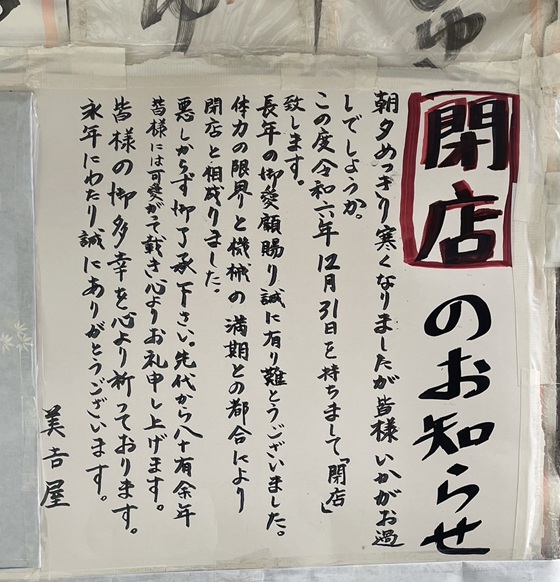 閉店のお知らせ
朝夕めっきり寒くなりましたが皆様いかがお過
しでしょうか。
この度令和六年12月31日を持ちまして「閉店」
致します。
長年の御愛顧賜り誠に有り難とうございました。
体力の限界と機械の満期との都合により
閉店と相成りました。
悪しからず御了承下さい。先代から八十有余年
皆様には可愛がて載き心よりお礼申し上げます。
皆様の御多幸を心より祈っております。
永年にわたり誠にありがとうございます。
美吉屋